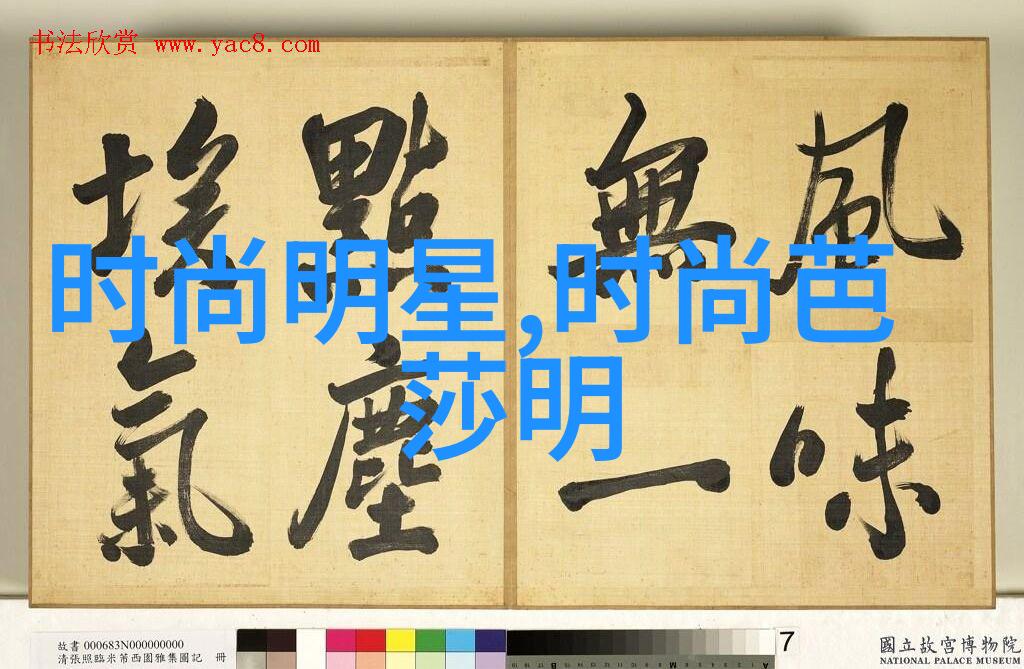 书法欣赏 www.yac8.com
風味
無一
點塵
埃氣
时尚明星,时尚芭
莎明
故書 000683N000000000
清張照臨米芾西園雅集圖記 冊
7
國立故宮博物院
NATIONAL PALACE MUSEUM